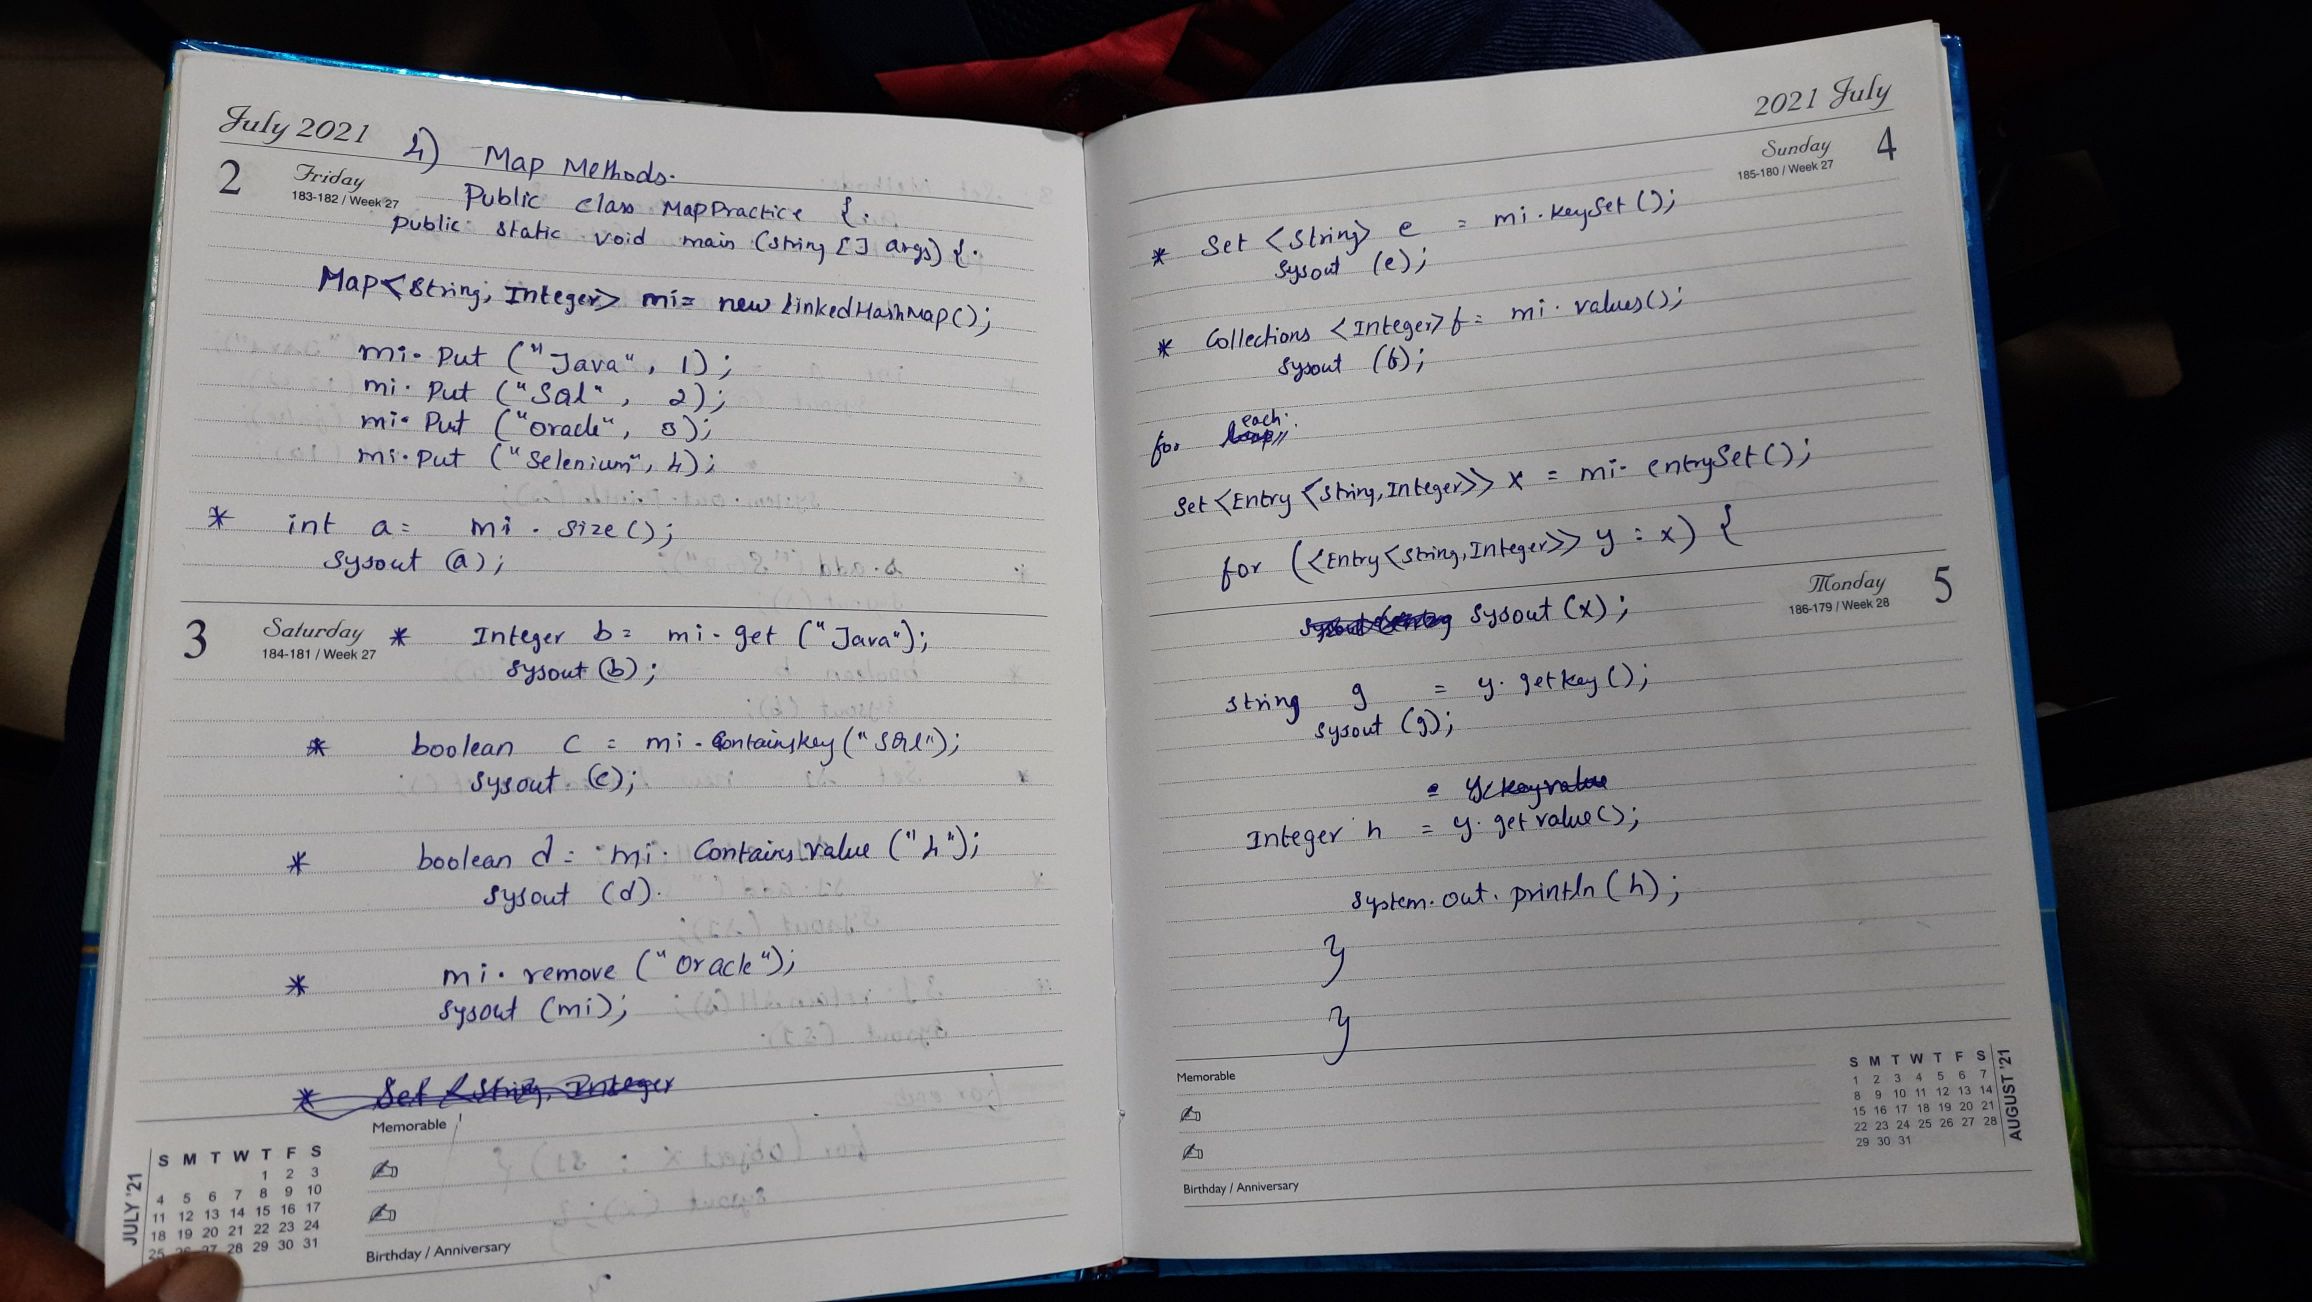 July 2021
4) Map Methods.
2 Friday
183-182 / Week 27
Public class MapPractice {.
public static void main (string [] args) {.
Map<String, Integer> mi= new LinkedHashMap();
mi. Put ("Java", 1);
mi. Put ("Sql", 2);
mi. Put ("oracle", 3);
mi. Put ("Selenium", 4);
* int a= mi . size();
sysout (a);
3 Saturday
184-181 / Week 27
* Integer b= mi - get ("Java");
sysout (b);
* boolean c = mi . Containskey ("SQL");
sysout (c);
* boolean d = mi . Contains value ("4");
sysout (d).
* mi . remove ("Oracle");
sysout (mi);
* Set <String, Integer
Memorable
JULY '21
S M T W T F S
1 2 3
4 5 6 7 8 9 10
11 12 13 14 15 16 17
18 19 20 21 22 23 24
25 26 27 28 29 30 31
Birthday / Anniversary
2021 July
Sunday 4
185-180 / Week 27
* Set <String> e = mi . keySet ();
sysout (e);
* Collections <Integer> f = mi . values();
sysout (f);
for each:
Set <Entry <String, Integer>> x = mi - entrySet ();
for (<Entry <String, Integer>> y : x) {
Monday 5
186-179 / Week 28
sysout (x);
string g = y. getkey ();
sysout (g);
= y. keyvalue
Integer h = y. getvalue();
system. out. println (h);
}
}
Memorable
Birthday / Anniversary
S M T W T F S
1 2 3 4 5 6 7
8 9 10 11 12 13 14
15 16 17 18 19 20 21
22 23 24 25 26 27 28
29 30 31
AUGUST '21